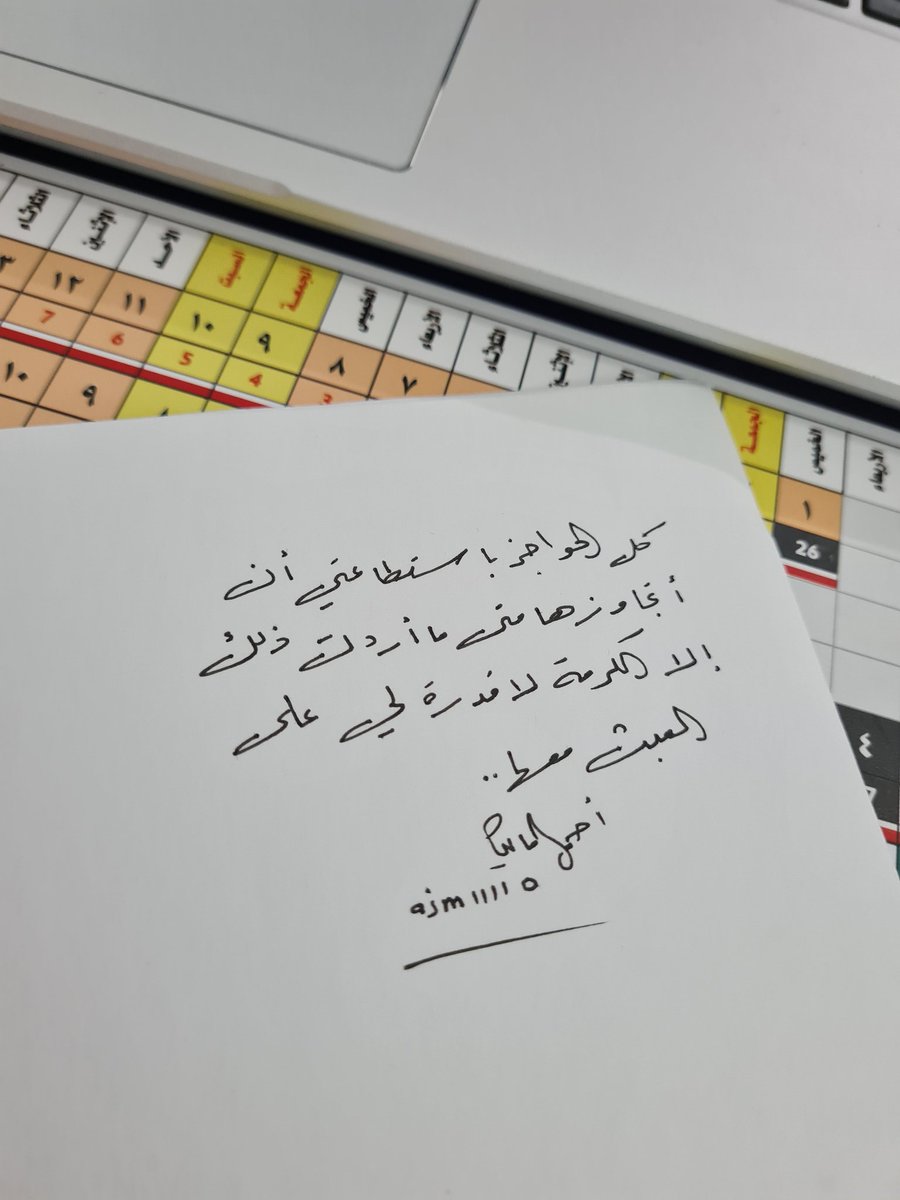 الثلاثاء الإثنين الأحد السبت الجمعة الخميس الأربعاء الثلاثاء الإثنين
١٢ ١١ ١٠ ٩ ٨ ٧
7 6 5 4
١٠ ٩
الجمعة الخميس الأربعاء
١
26
٤
كل الحواجز باستطاعتي أن
أتجاوزها متى ما أردت ذلك
إلا الكرامة لا قدرة لي على
العبث معها..
أحمد
ajm11110